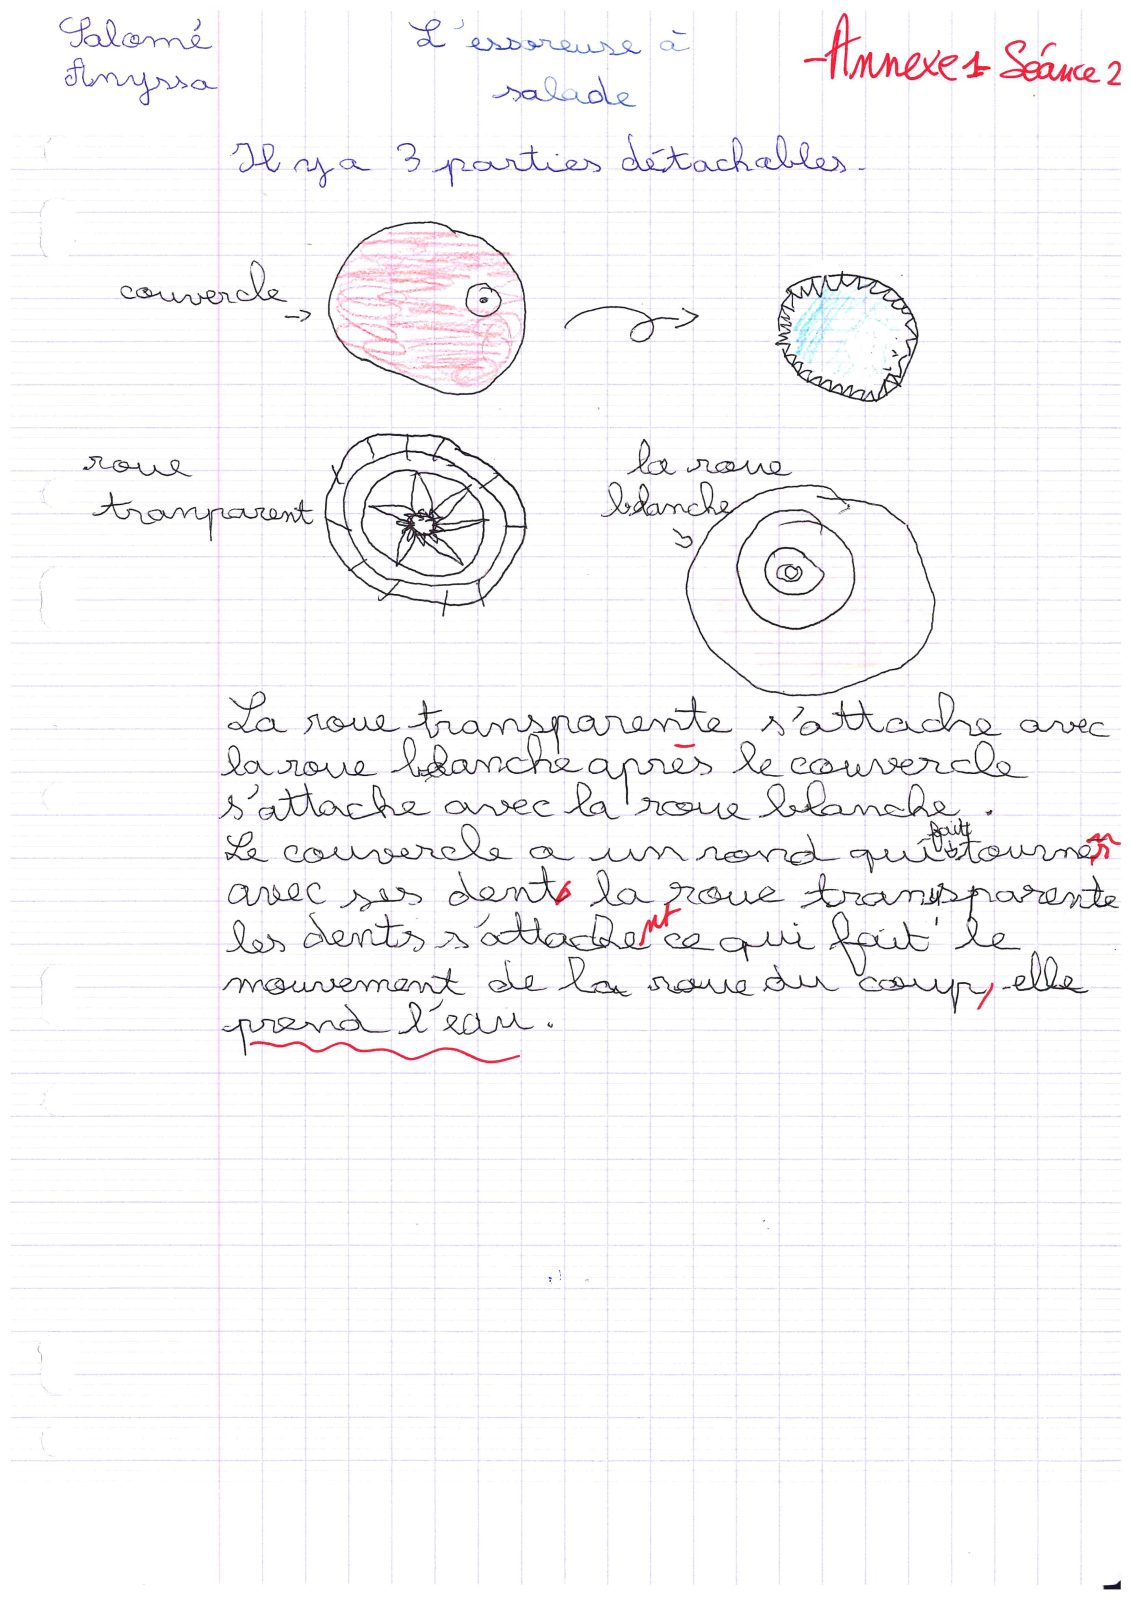 Salomé
Anyssa
L'essoreuse à
salade
-Annexe 1- Séance 2
Il y a 3 parties détachables.
couvercle
roue
tranparent
la roue
blanche
La roue transparente s'attache avec
la roue blanche après le couvercle
s'attache avec la roue blanche.
Le couvercle a un rond qui fait tourner
avec ses dents la roue transparente
les dents s'attachent ce qui fait le
mouvement de la roue du coup, elle
prend l'eau.